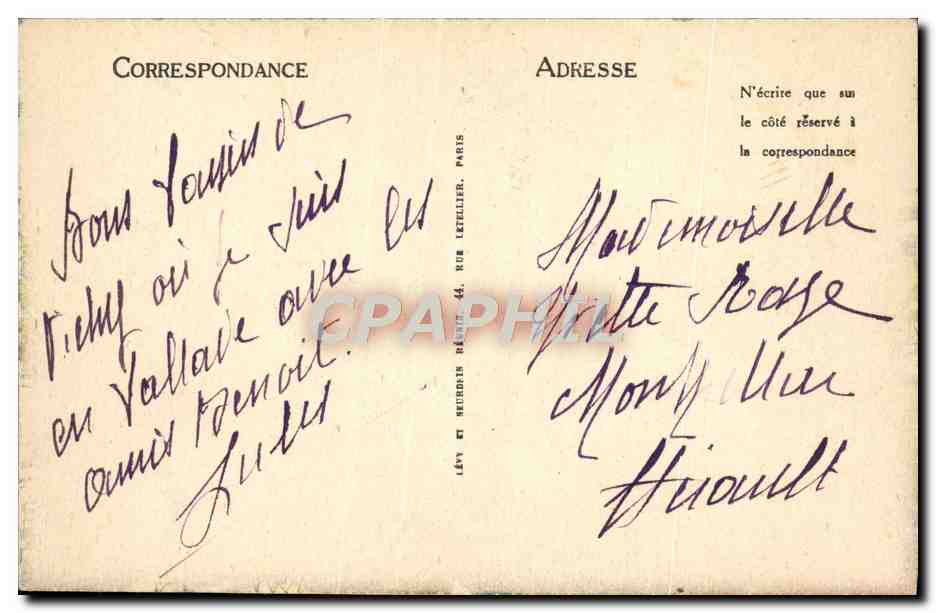 CORRESPONDANCE
Bons baisers de
Vichy où je suis
en ballade avec les
amis Benoit.
Jules
LÉVY ET NEURDEIN RÉUNIS 44, RUE LETELLIER, PARIS
ADRESSE
N'écrire que sur
le côté réservé à
la correspondance
Mademoiselle
Yvette
Montpellier
Hérault
CPAPHIL